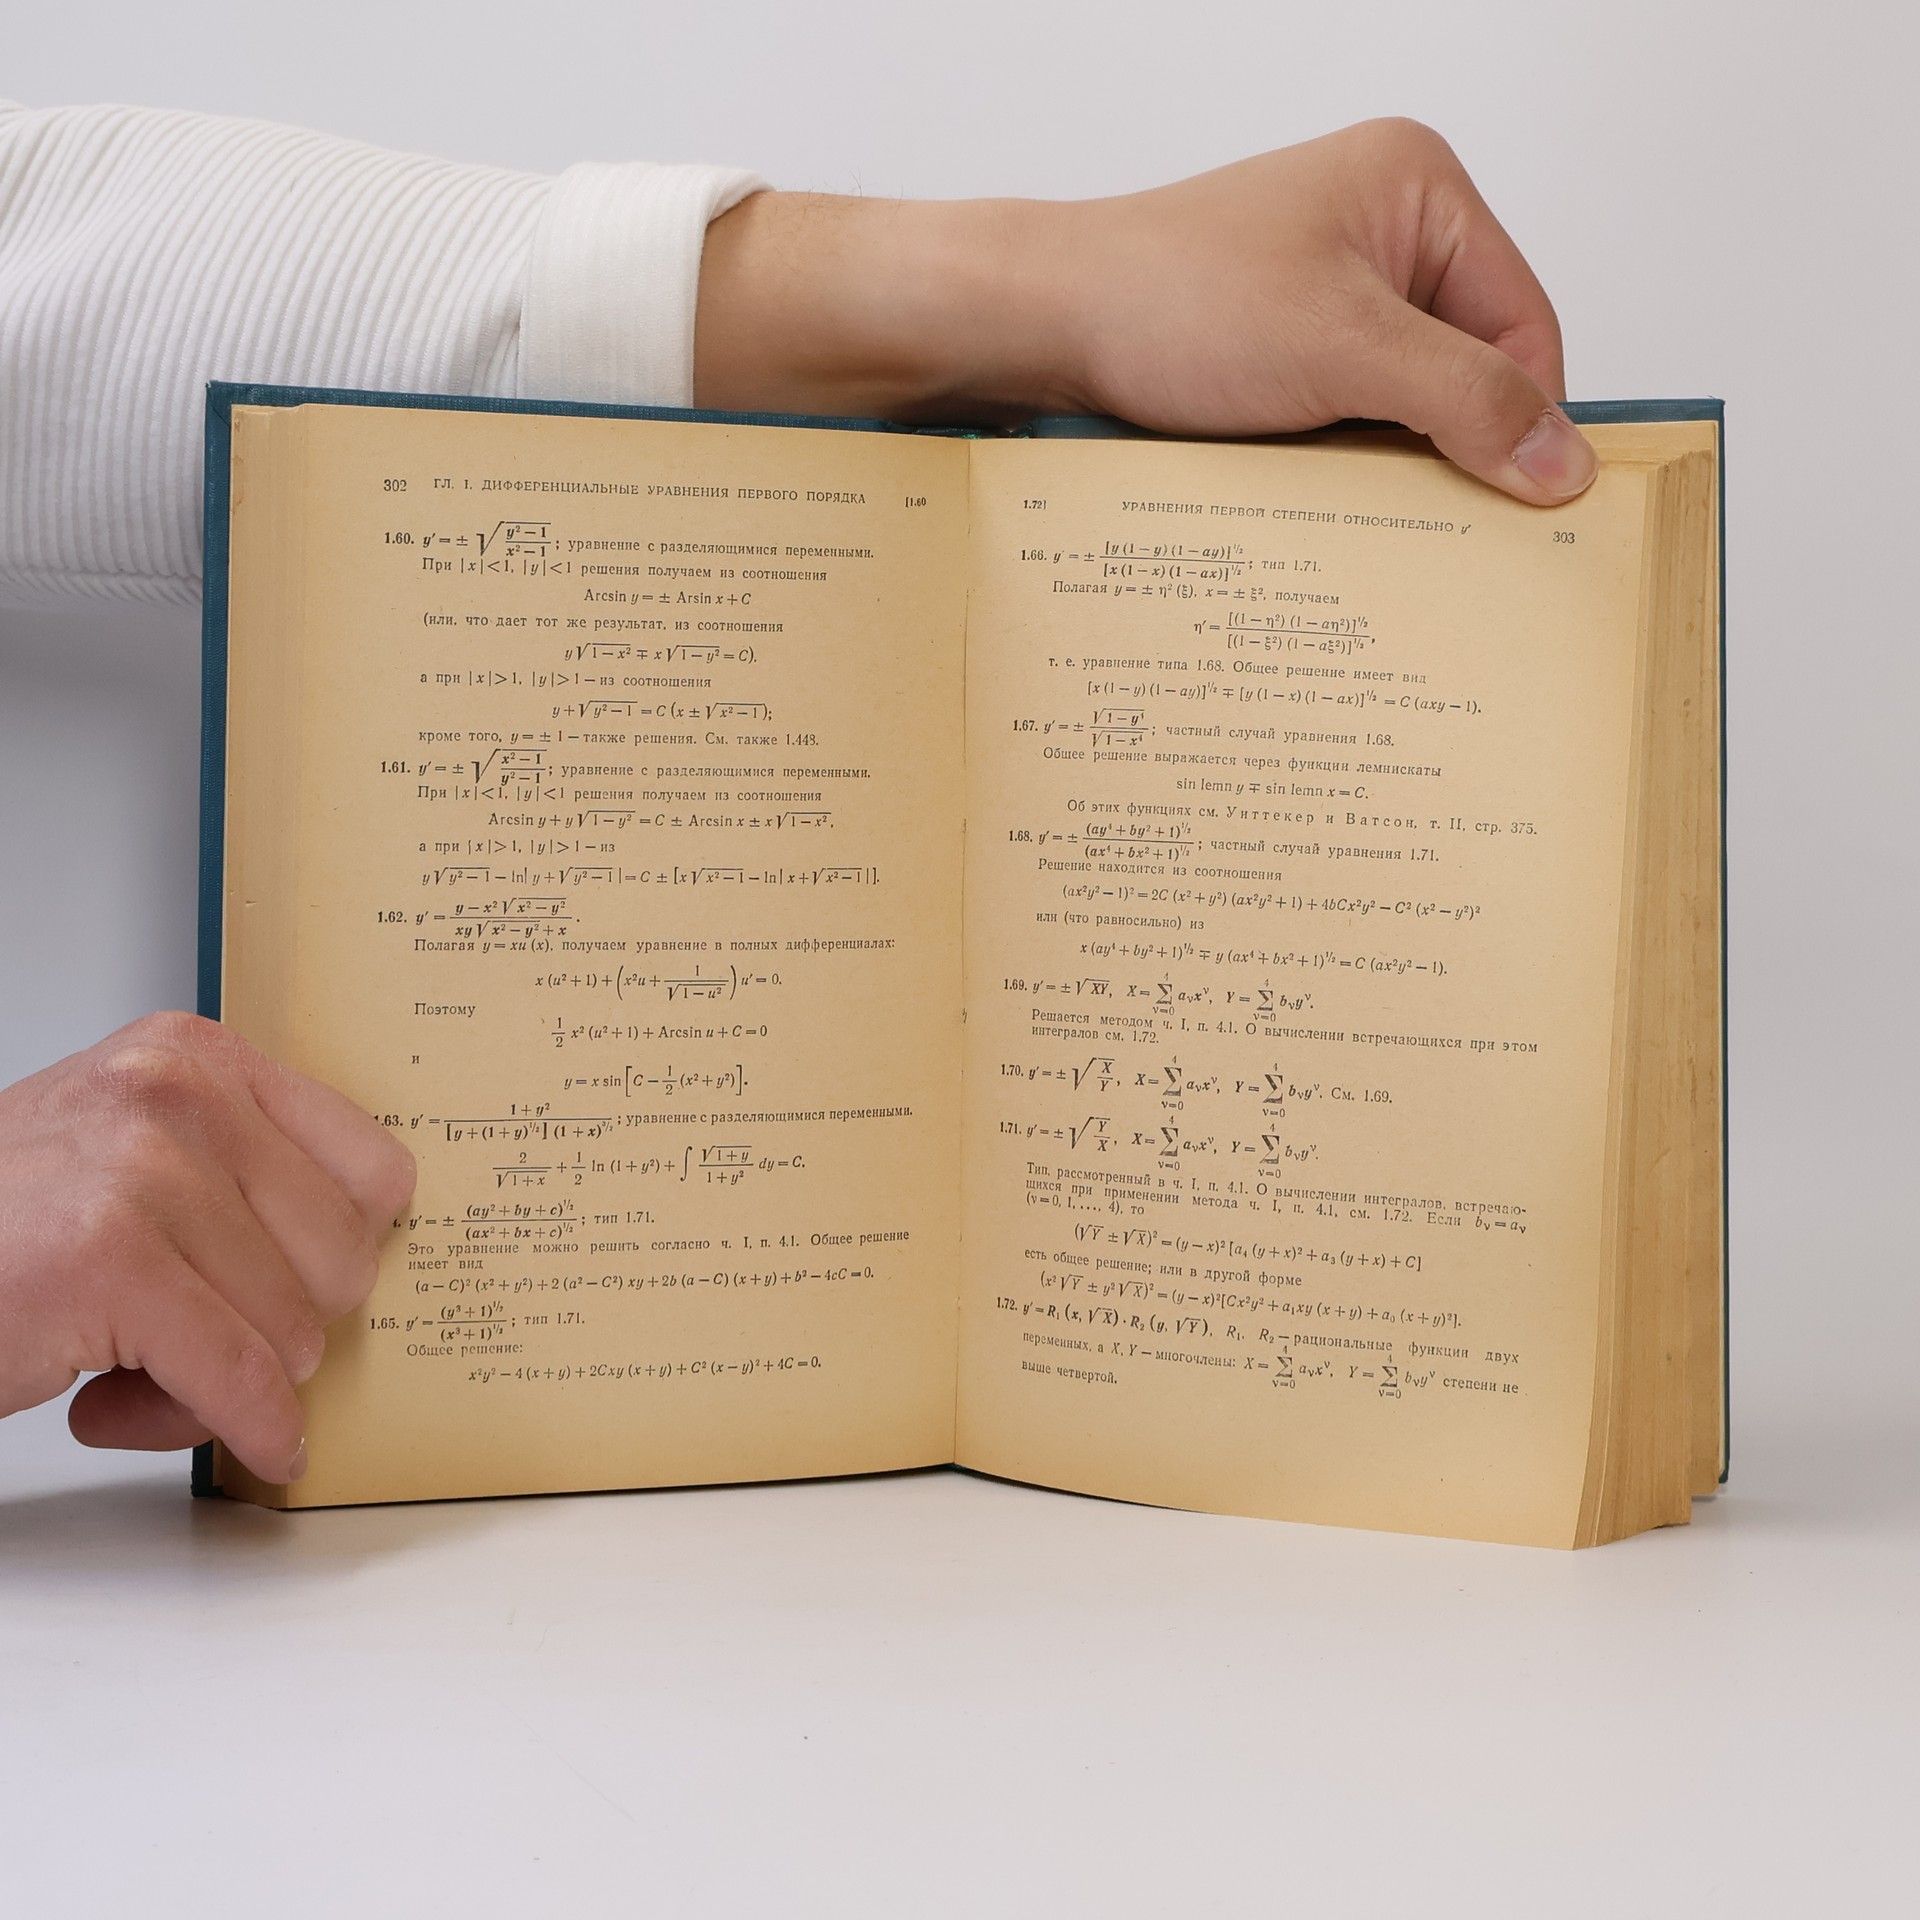 302 ГЛ. I. ДИФФЕРЕНЦИАЛЬНЫЕ УРАВНЕНИЯ ПЕРВОГО ПОРЯДКА [1.60
1.60. y′ = ± √((y² − 1)/(x² − 1)); уравнение с разделяющимися переменными.
При |x| < 1, |y| < 1 решения получаем из соотношения
Arcsin y = ± Arsin x + C
(или, что дает тот же результат, из соотношения
y√(1 − x²) ∓ x√(1 − y²) = C).
а при |x| > 1, |y| > 1 — из соотношения
y + √(y² − 1) = C (x ± √(x² − 1));
кроме того, y = ± 1 — также решения. См. также 1.448.
1.61. y′ = ± √((x² − 1)/(y² − 1)); уравнение с разделяющимися переменными.
При |x| < 1, |y| < 1 решения получаем из соотношения
Arcsin y + y√(1 − y²) = C ± Arcsin x ± x√(1 − x²),
а при |x| > 1, |y| > 1 — из
y√(y² − 1) − ln|y + √(y² − 1)| = C ± [x√(x² − 1) − ln|x + √(x² − 1)|].
1.62. y′ = (y − x²√(x² − y²))/(xy√(x² − y²) + x).
Полагая y = xu (x), получаем уравнение в полных дифференциалах:
x (u² + 1) + (x²u + 1/√(1 − u²)) u′ = 0.
Поэтому
1/2 x² (u² + 1) + Arcsin u + C = 0
и
y = x sin [C − 1/2 (x² + y²)].
1.63. y′ = (1 + y²)/([y + (1 + y)^½] (1 + x)^³/₂); уравнение с разделяющимися переменными.
2/√(1 + x) + 1/2 ln (1 + y²) + ∫ √(1 + y)/(1 + y²) dy = C.
4. y′ = ± (ay² + by + c)^½/(ax² + bx + c)^½; тип 1.71.
Это уравнение можно решить согласно ч. I, п. 4.1. Общее решение
имеет вид
(a − C)² (x² + y²) + 2 (a² − C²) xy + 2b (a − C) (x + y) + b² − 4cC = 0.
1.65. y′ = (y³ + 1)^½/(x³ + 1)^½; тип 1.71.
Общее решение:
x²y² − 4 (x + y) + 2Cxy (x + y) + C² (x − y)² + 4C = 0.
1.72] УРАВНЕНИЯ ПЕРВОЙ СТЕПЕНИ ОТНОСИТЕЛЬНО y′ 303
1.66. y′ = ± [y (1 − y) (1 − ay)]^½/[x (1 − x) (1 − ax)]^½; тип 1.71.
Полагая y = ± η² (ξ), x = ± ξ², получаем
η′ = [(1 − η²) (1 − aη²)]^½/[(1 − ξ²) (1 − aξ²)]^½,
т. е. уравнение типа 1.68. Общее решение имеет вид
[x (1 − y) (1 − ay)]^½ ∓ [y (1 − x) (1 − ax)]^½ = C (axy − 1).
1.67. y′ = ± √(1 − y⁴)/√(1 − x⁴); частный случай уравнения 1.68.
Общее решение выражается через функции лемнискаты
sin lemn y ∓ sin lemn x = C.
Об этих функциях см. Уиттекер и Ватсон, т. II, стр. 375.
1.68. y′ = ± (ay⁴ + by² + 1)^½/(ax⁴ + bx² + 1)^½; частный случай уравнения 1.71.
Решение находится из соотношения
(ax²y² − 1)² = 2C (x² + y²) (ax²y² + 1) + 4bCx²y² − C² (x² − y²)²
или (что равносильно) из
x (ay⁴ + by² + 1)^½ ∓ y (ax⁴ + bx² + 1)^½ = C (ax²y² − 1).
1.69. y′ = ± √(XY), X = ∑_{ν=0}^{4} a_ν x^ν, Y = ∑_{ν=0}^{4} b_ν y^ν.
Решается методом ч. I, п. 4.1. О вычислении встречающихся при этом
интегралов см. 1.72.
1.70. y′ = ± √(X/Y), X = ∑_{ν=0}^{4} a_ν x^ν, Y = ∑_{ν=0}^{4} b_ν y^ν. См. 1.69.
1.71. y′ = ± √(Y/X), X = ∑_{ν=0}^{4} a_ν x^ν, Y = ∑_{ν=0}^{4} b_ν y^ν.
Тип, рассмотренный в ч. I, п. 4.1. О вычислении интегралов, встречаю-
щихся при применении метода ч. I, п. 4.1, см. 1.72. Если b_ν = a_ν
(ν = 0, 1, ..., 4), то
(√Y ± √X)² = (y − x)² [a₄ (y + x)² + a₃ (y + x) + C]
есть общее решение; или в другой форме
(x²√Y ± y²√X)² = (y − x)² [Cx²y² + a₁xy (x + y) + a₀ (x + y)²].
1.72. y′ = R₁ (x, √X) · R₂ (y, √Y), R₁, R₂ — рациональные функции двух
переменных, а X, Y — многочлены: X = ∑_{ν=0}^{4} a_ν x^ν, Y = ∑_{ν=0}^{4} b_ν y^ν степени не
выше четвертой.